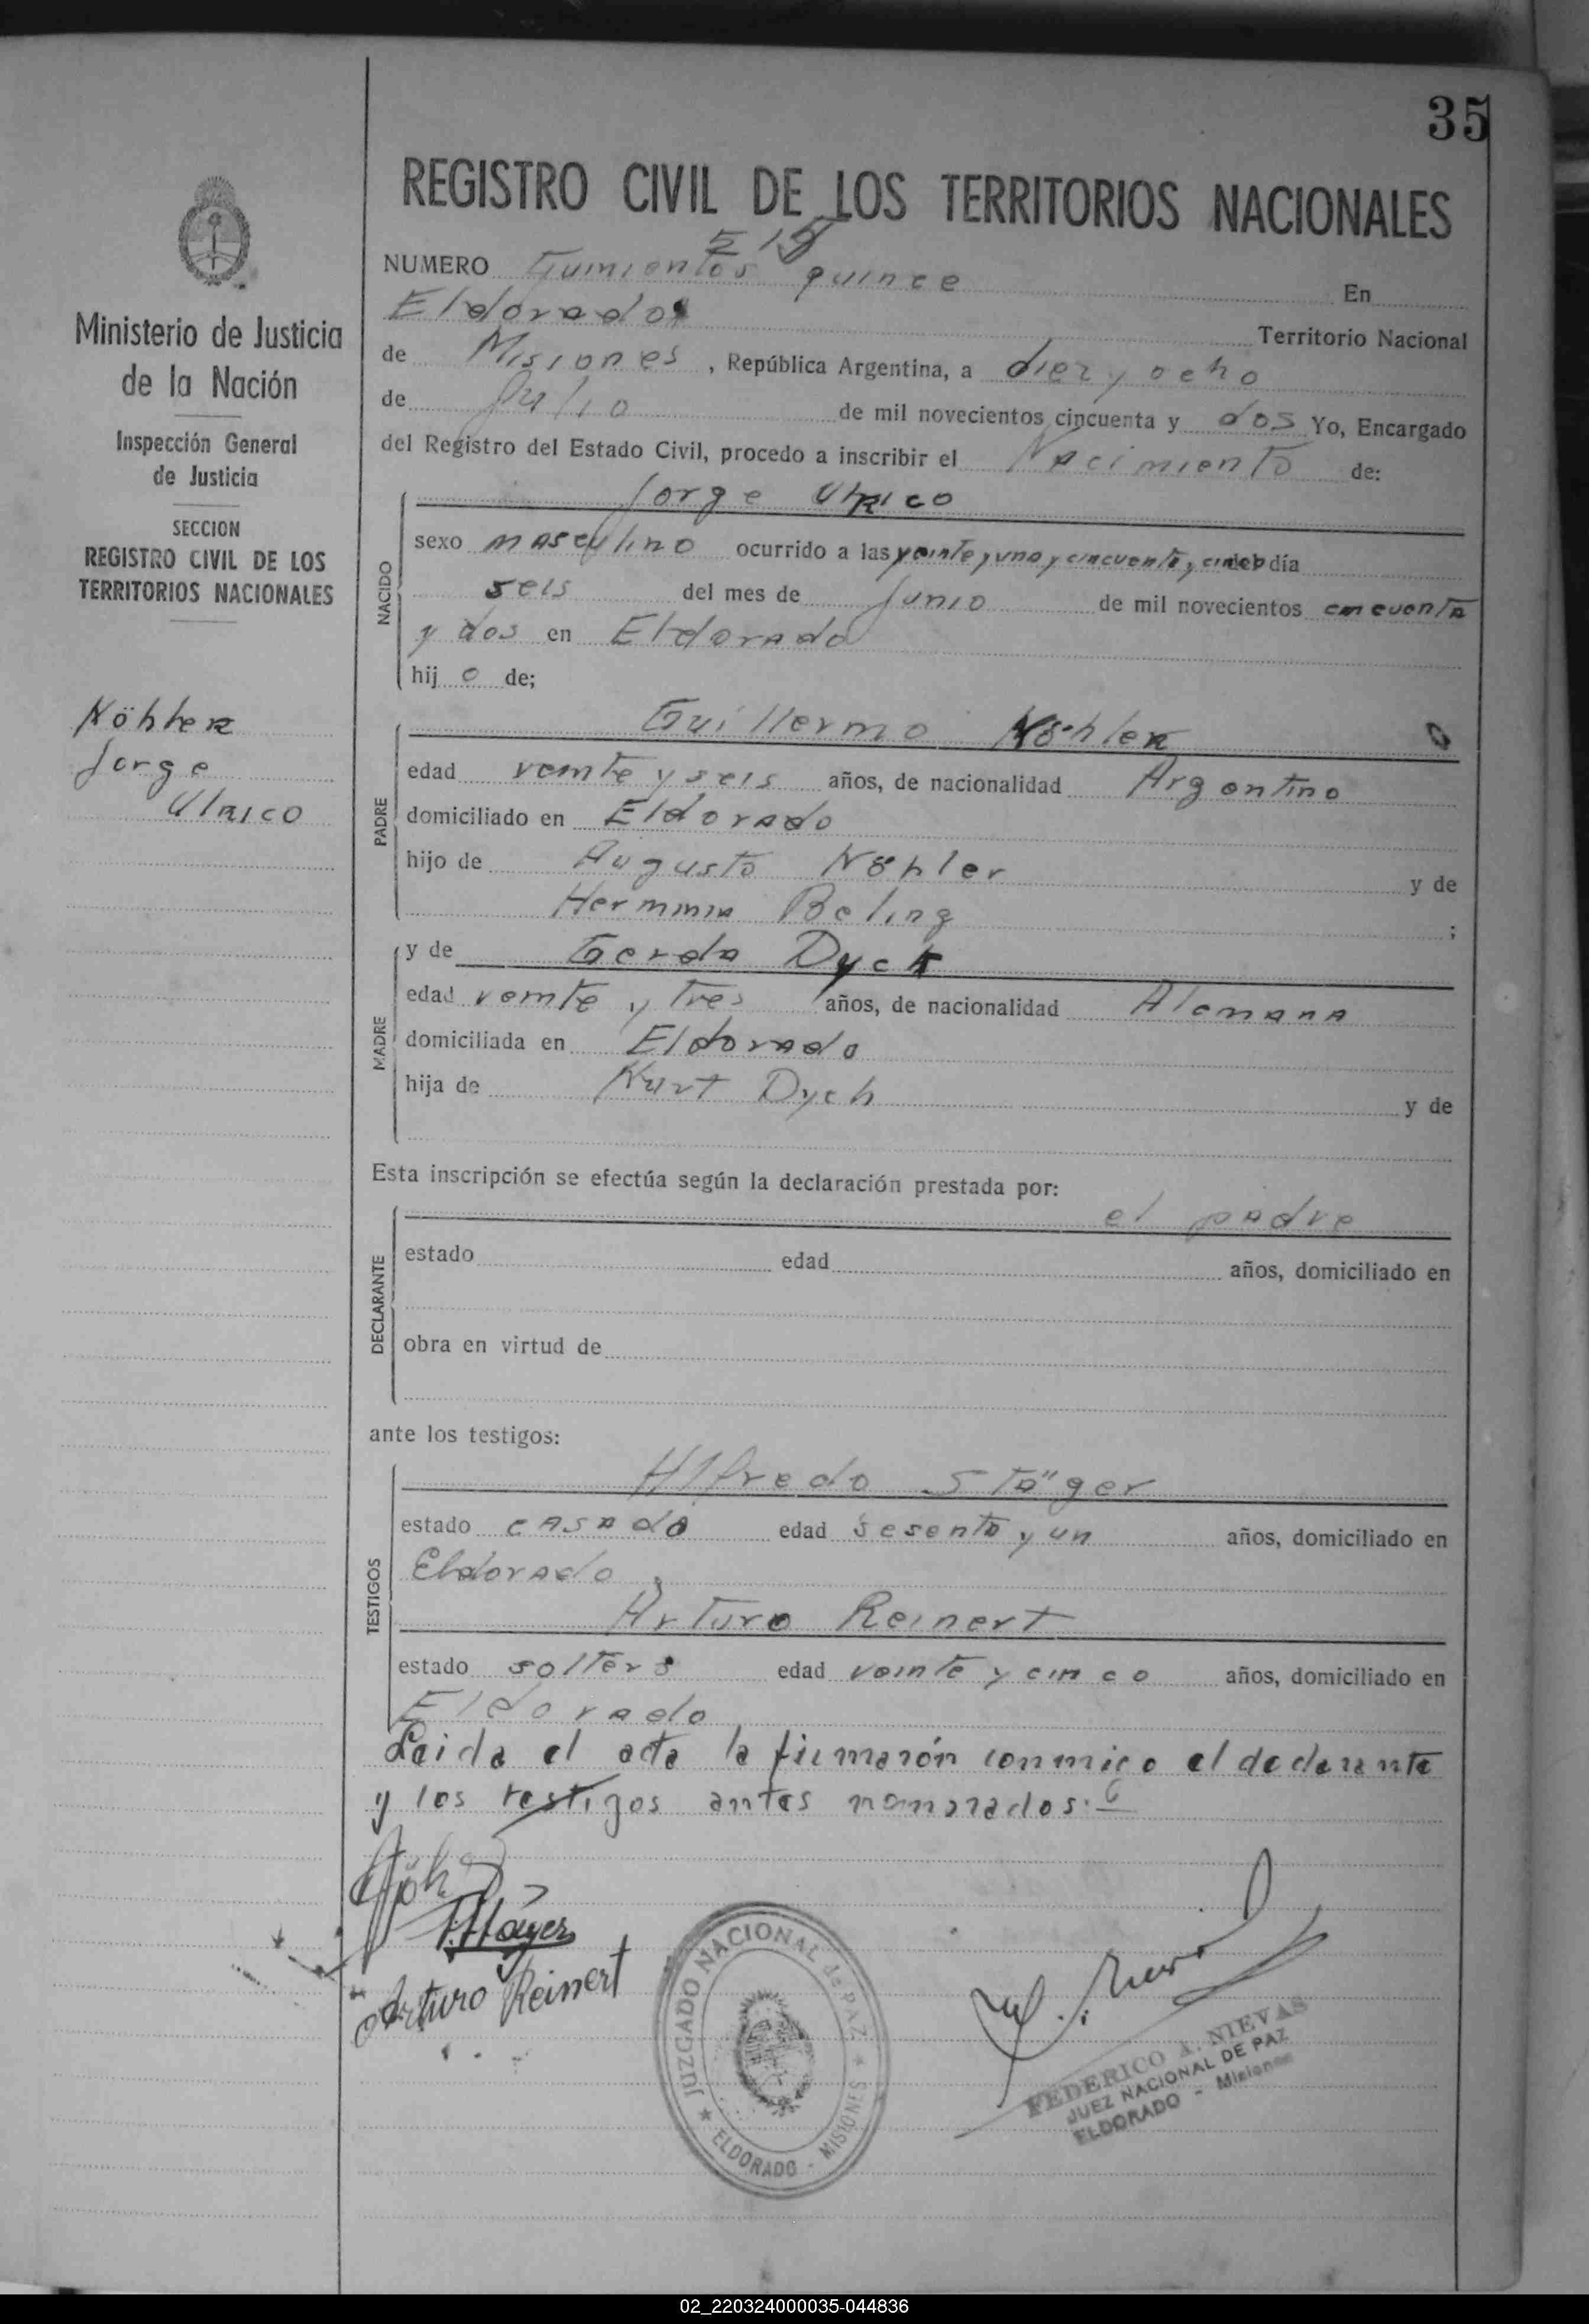 35
REGISTRO CIVIL DE LOS TERRITORIOS NACIONALES
515
NUMERO Quinientos quince En
Eldorado Territorio Nacional
de Misiones, República Argentina, a diez y ocho
de Julio de mil novecientos cincuenta y dos Yo, Encargado
del Registro del Estado Civil, procedo a inscribir el Nacimiento de:
Ministerio de Justicia
de la Nación
Inspección General
de Justicia
SECCION
REGISTRO CIVIL DE LOS
TERRITORIOS NACIONALES
Köhler
Jorge
Ulrico
NACIDO
Jorge Ulrico
sexo masculino ocurrido a las veinte y una y cincuenta y cinco del día
seis del mes de Junio de mil novecientos cincuenta
y dos en Eldorado
hij o de;
PADRE
Guillermo Köhler
edad veinte y seis años, de nacionalidad Argentino
domiciliado en Eldorado
hijo de Augusto Köhler y de
Herminia Beling ;
MADRE
y de Gerda Dyck
edad veinte y tres años, de nacionalidad Alemana
domiciliada en Eldorado
hija de Kurt Dych y de
Esta inscripción se efectúa según la declaración prestada por:
DECLARANTE
el padre
estado edad años, domiciliado en
obra en virtud de
ante los testigos:
TESTIGOS
Alfredo Stäger
estado casado edad sesenta y un años, domiciliado en
Eldorado
Arturo Reinert
estado soltero edad veinte y cinco años, domiciliado en
Eldorado
Leida el acta la firmarón conmigo el declarante
y los testigos antes nombrados.
Arturo Reinert
JUZGADO NACIONAL de PAZ
ELDORADO - MISIONES
FEDERICO A. NIEVAS
JUEZ NACIONAL DE PAZ
ELDORADO - Misiones
02_220324000035-044836